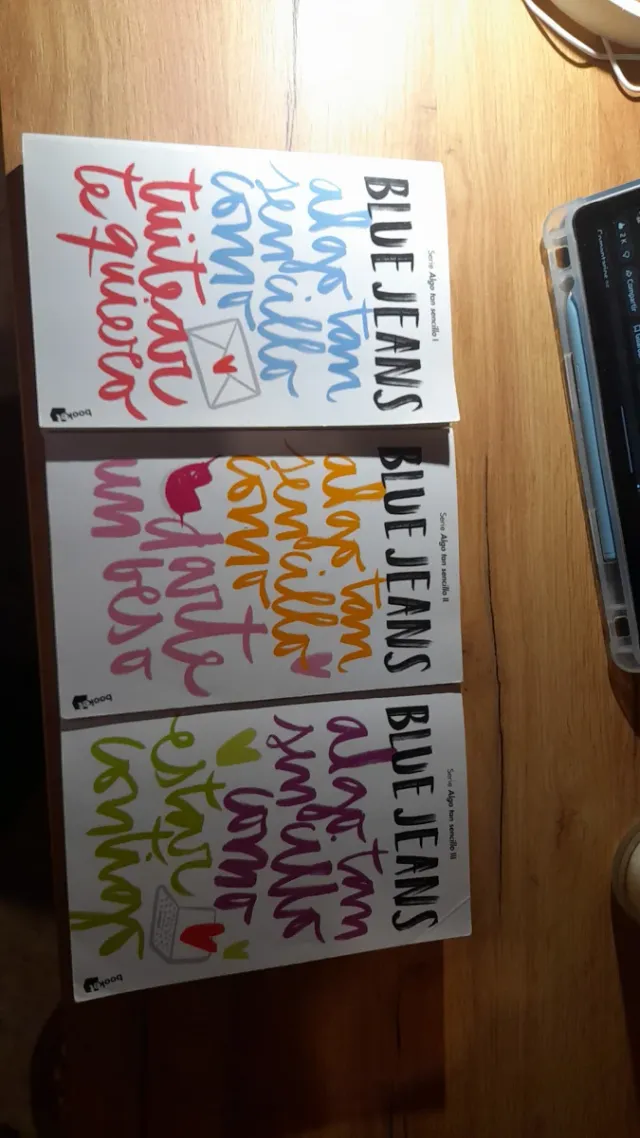 Serie Algo tan sencillo I
BLUE JEANS
algo tan
sencillo
como
tuitear
te quiero
booket
Serie Algo tan sencillo II
BLUE JEANS
algo tan
sencillo
como
darte
un beso
booket
Serie Algo tan sencillo III
BLUE JEANS
algo tan
sencillo
como
estar
contigo
booket
2 K
Compartir